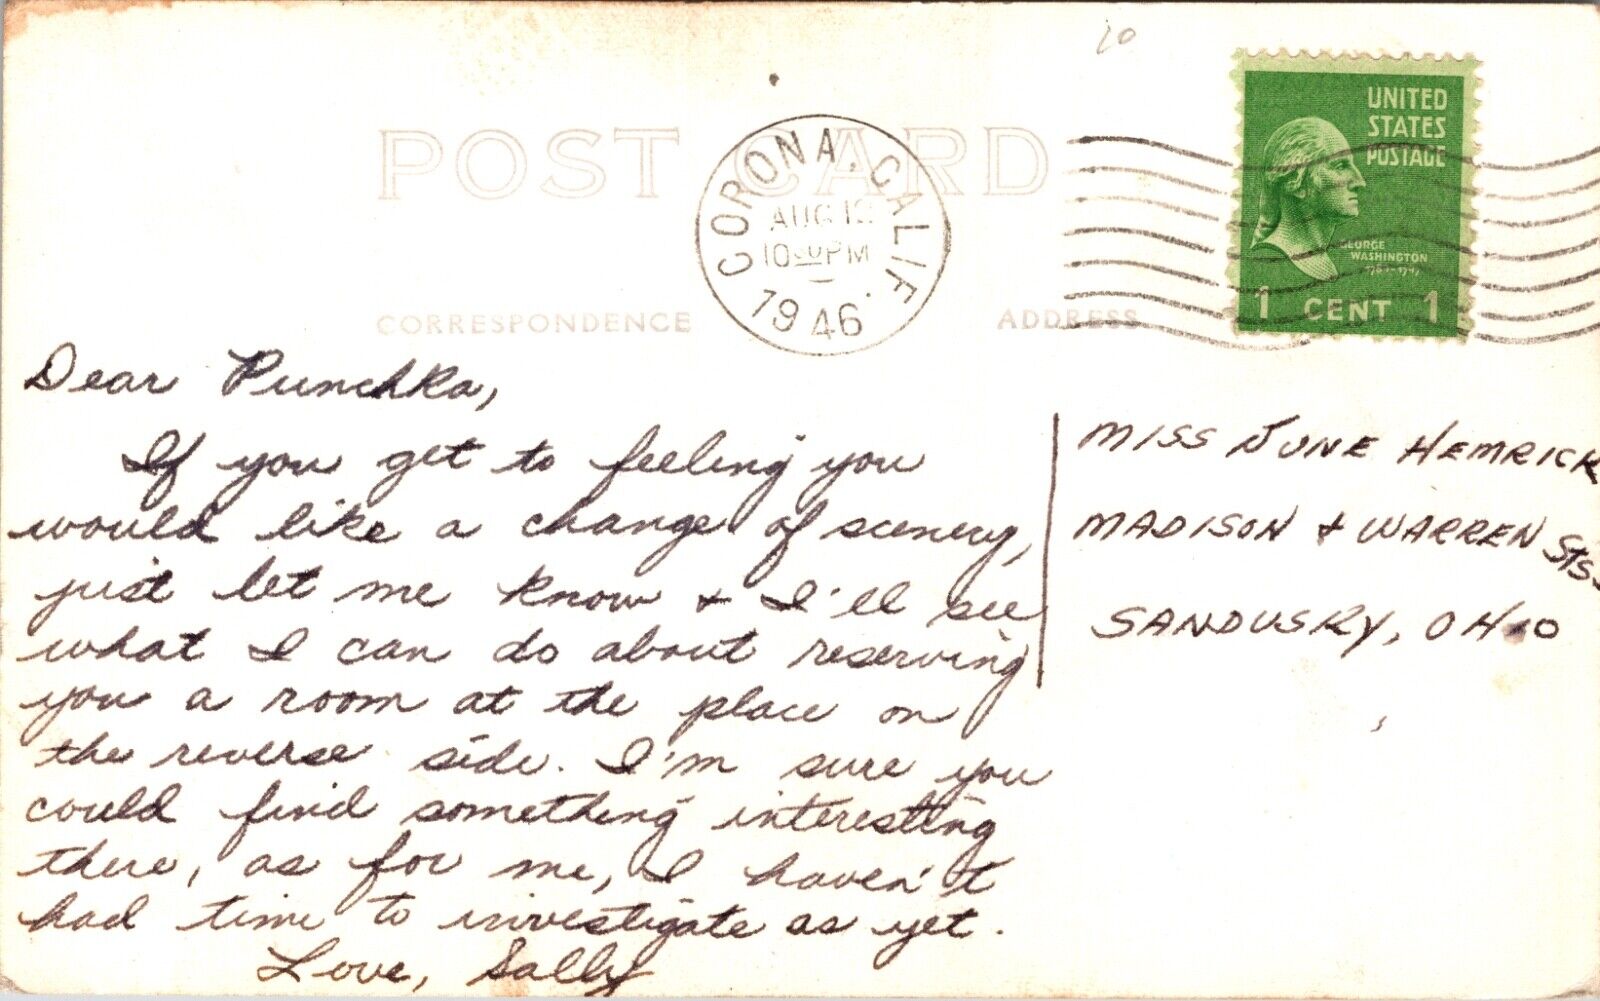 10
POST CARD
CORONA, CALIF.
AUG
10 PM
1946
UNITED
STATES
POSTAGE
GEORGE
WASHINGTON
1 CENT 1
CORRESPONDENCE
ADDRESS
Dear Punchka,
If you get to feeling you
would like a change of scenery,
just let me know & I'll see
what I can do about reserving
you a room at the place on
the reverse side. I'm sure you
could find something interesting
there, as for me, I haven't
had time to investigate as yet.
Love, Sally
MISS JUNE HEMRICK
MADISON & WARREN STS.
SANDUSKY, OHIO